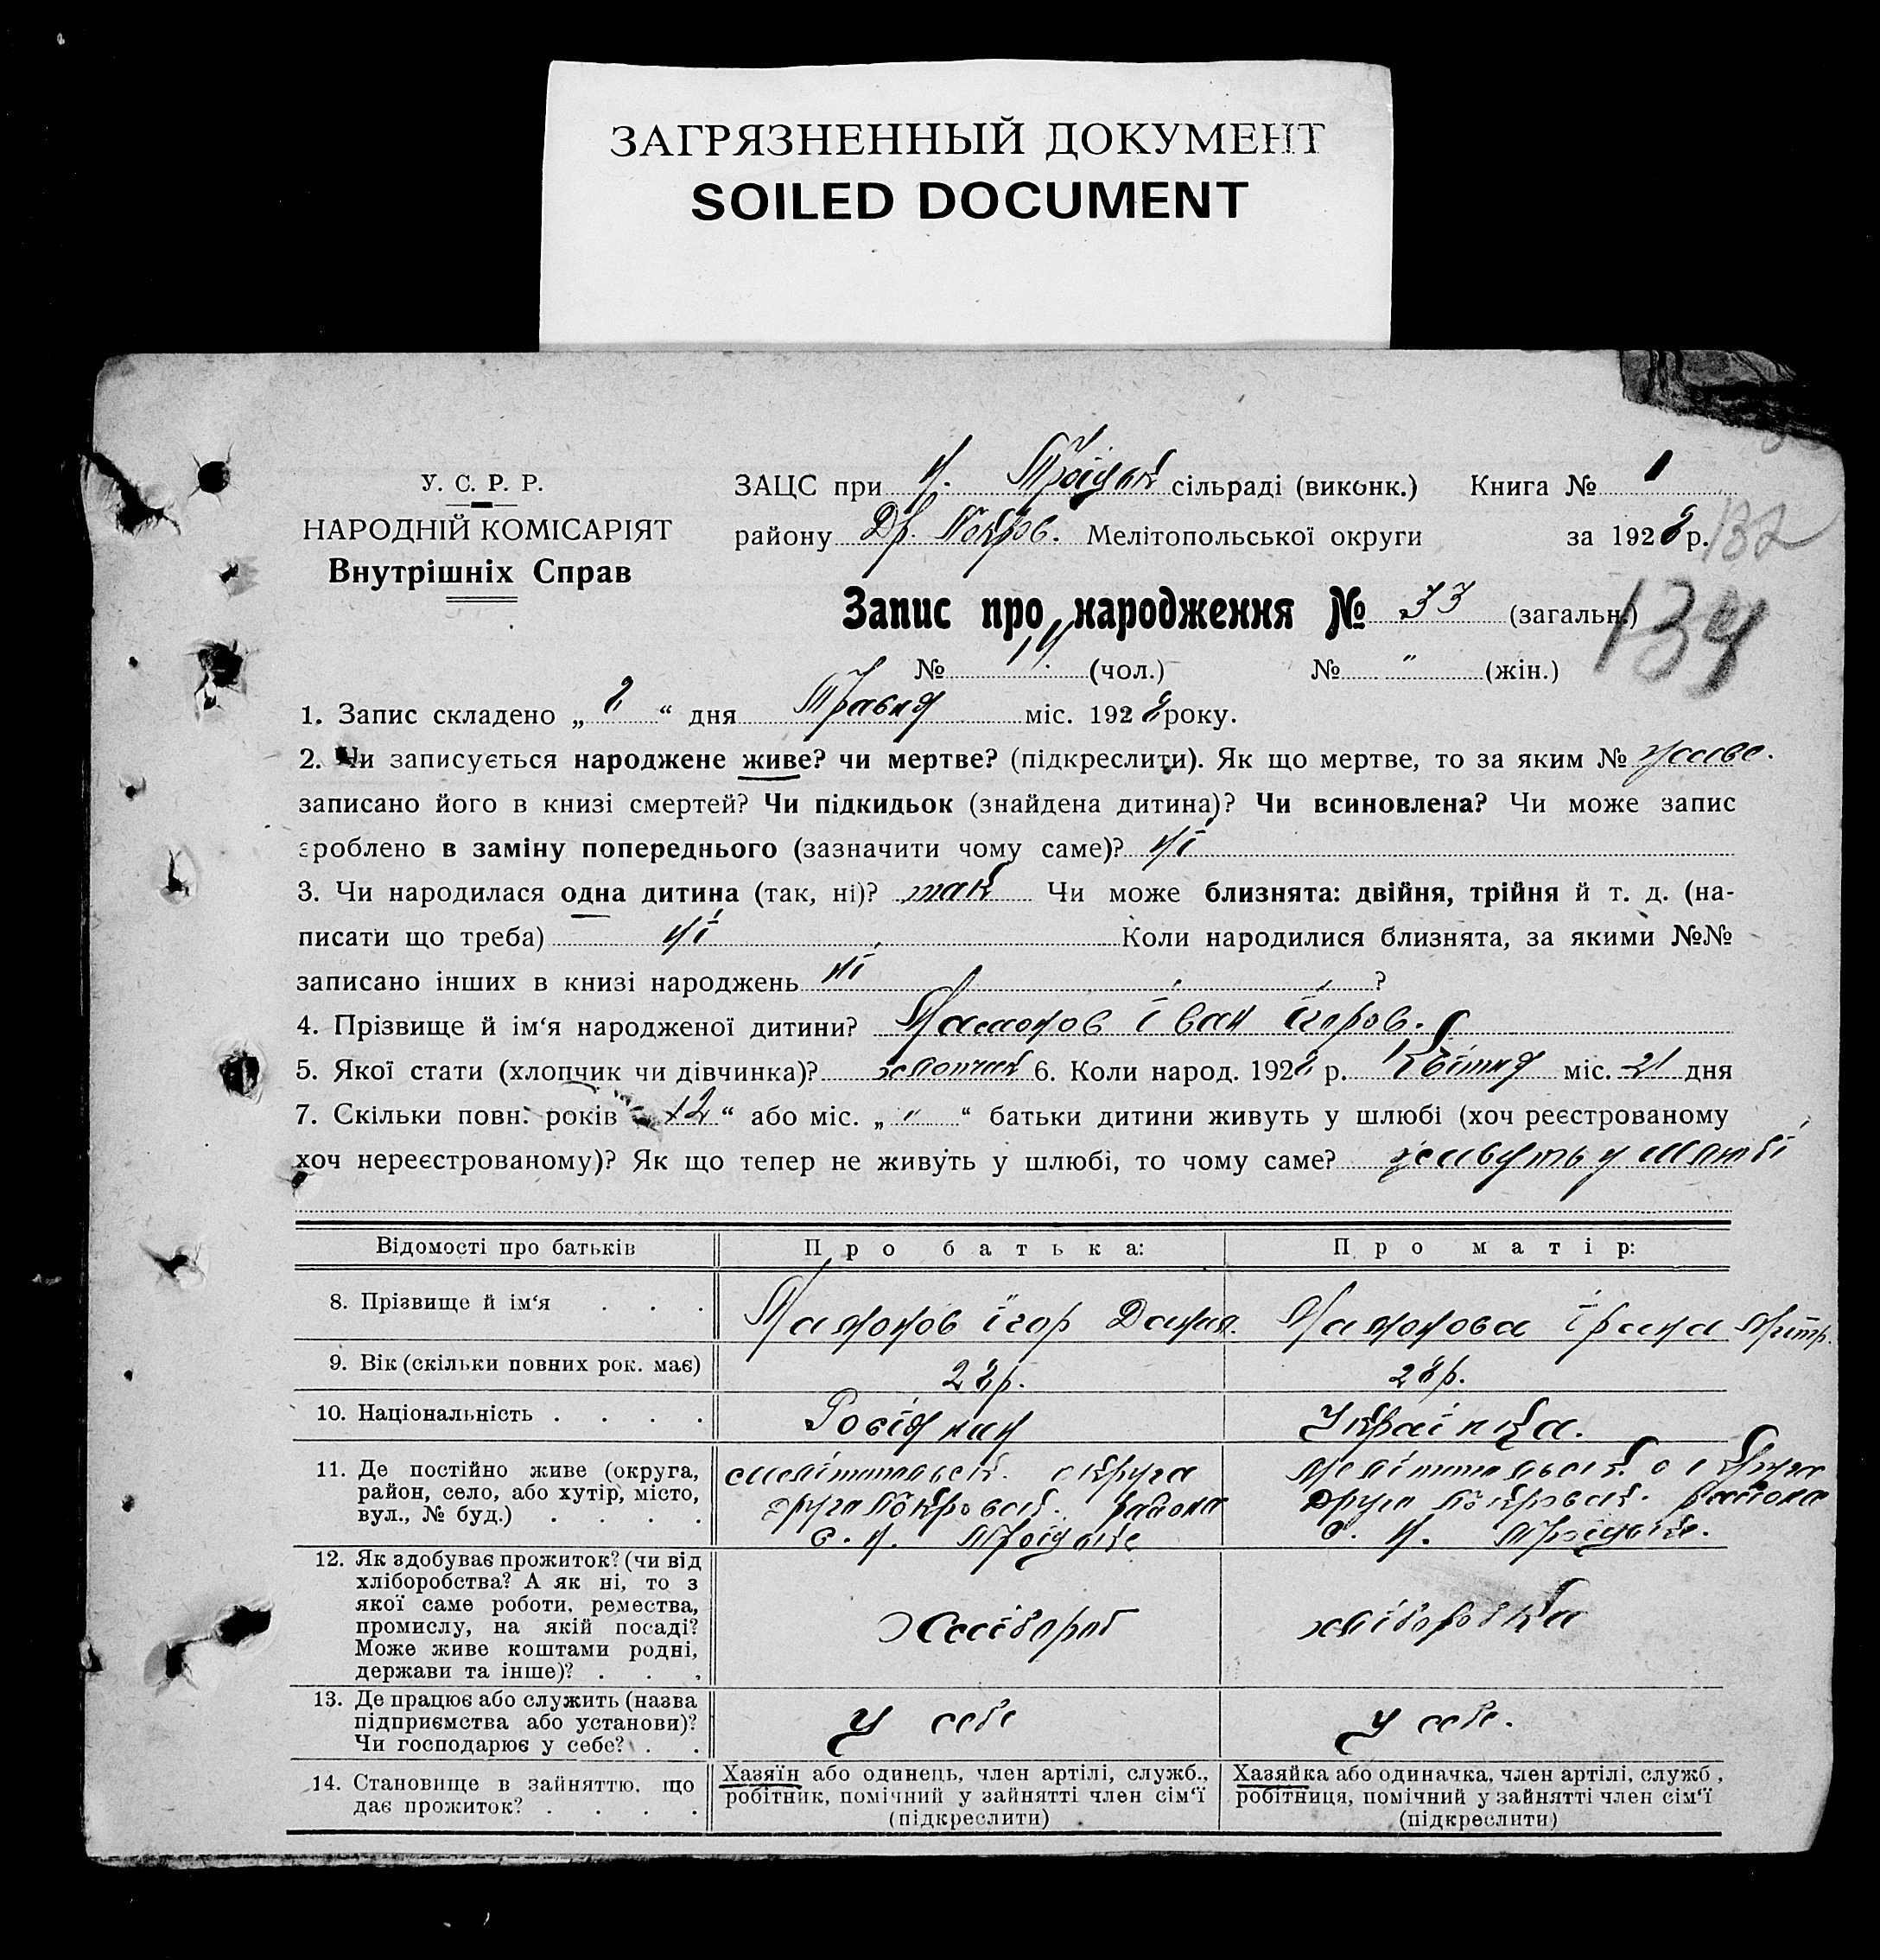 ЗАГРЯЗНЕННЫЙ ДОКУМЕНТ
SOILED DOCUMENT
У. С. Р. Р.
НАРОДНІЙ КОМІСАРІЯТ
Внутрішніх Справ
ЗАЦС при Н. Троїцьк сільраді (виконк.) Книга № 1
району Др. Покров. Мелітопольської округи за 1928 р.
132
Запис про народження № 33 (загальн.)
134
№ 14. (чол.) № " (жін.)
1. Запис складено „ 8 “ дня Травня міс. 1928 року.
2. Чи записується народжене живе? чи мертве? (підкреслити). Як що мертве, то за яким № живе.
записано його в книзі смертей? Чи підкидьок (знайдена дитина)? Чи всиновлена? Чи може запис
зроблено в заміну попереднього (зазначити чому саме)? ні
3. Чи народилася одна дитина (так, ні)? так Чи може близнята: двійня, трійня й т. д. (на-
писати що треба) ні Коли народилися близнята, за якими №№
записано інших в книзі народжень ні ?
4. Прізвище й ім‘я народженої дитини? Іван Ігоров.
5. Якої стати (хлопчик чи дівчинка)? хлопчик 6. Коли народ. 1928 р. Квітня міс. 21 дня
7. Скільки повн. років „ 12 “ або міс. „ " “ батьки дитини живуть у шлюбі (хоч реєстрованому
хоч нереєстрованому)? Як що тепер не живуть у шлюбі, то чому саме? живуть у шлюбі
Відомості про батьків Про батька: Про матір:
8. Прізвище й ім‘я . . . Ігор Данил. Ірина
9. Вік (скільки повних рок. має) 28 р. 28 р.
10. Національність . . . . Росіянин Українка.
11. Де постійно живе (округа,
район, село, або хутір, місто,
вул., № буд.) . . . .
Мелітопольськ. округа
друго Покровськ. района
с. Н. Троїцьке
Мелітопольськ. округа
друго Покровськ. района
с. Н. Троїцьке.
12. Як здобуває прожиток? (чи від
хліборобства? А як ні, то з
якої саме роботи, ремества,
промислу, на якій посаді?
Може живе коштами родні,
держави та інше)? . . .
Хлібороб хліборобка
13. Де працює або служить (назва
підприємства або установи)?
Чи господарює у себе? . .
у себе у себе.
14. Становище в зайняттю, що
дає прожиток? . . . .
Хазяїн або одинець, член артілі, служб.,
робітник, помічний у зайнятті член сім‘ї
(підкреслити)
Хазяйка або одиначка, член артілі, служб.,
робітниця, помічний у зайнятті член сім‘ї
(підкреслити)